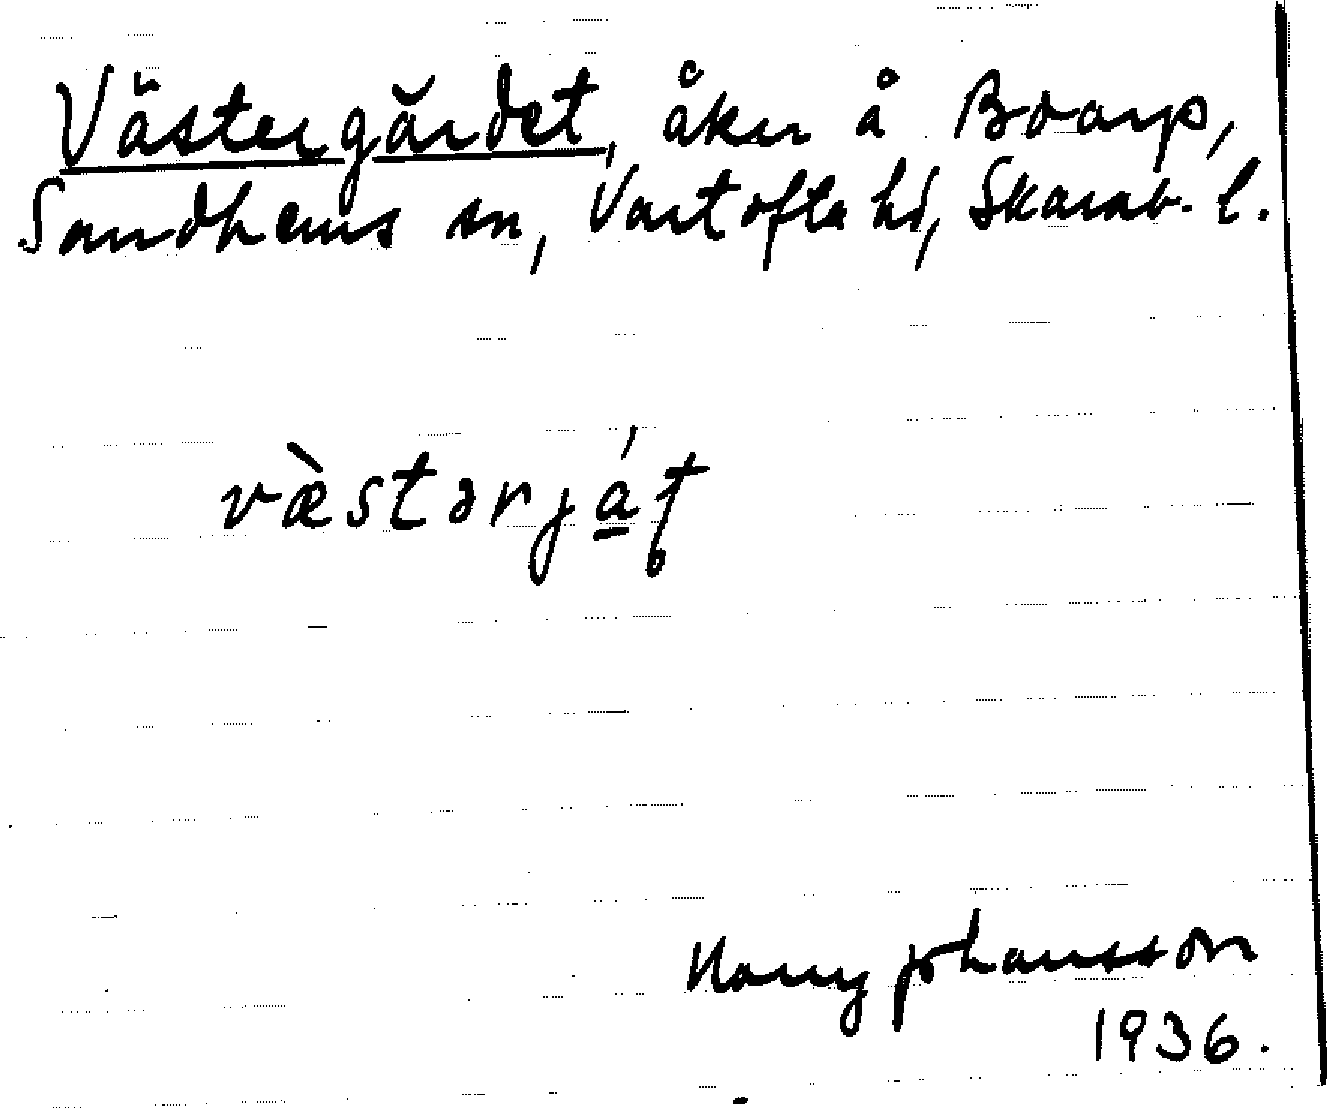 Västergärdet, åker å Boarp,
Sandhems sn, Vartofta hd, Skarab. l.
væ̀stərjá̠ƭ
Harry Johansson
1936.